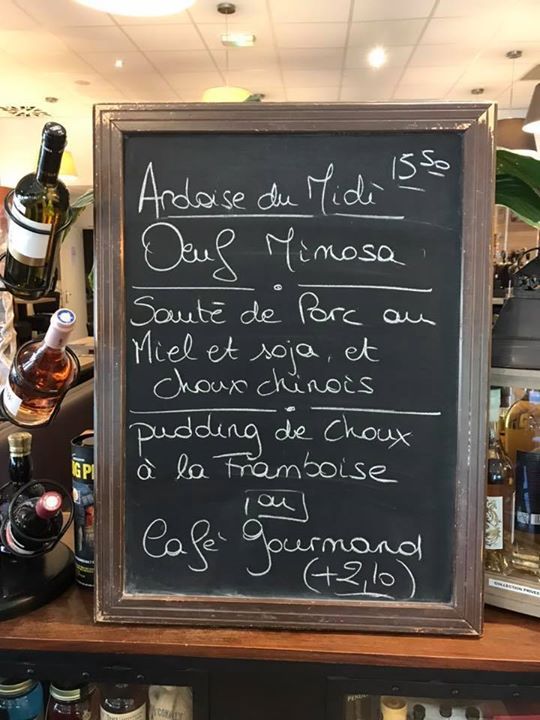 Ardoise du Midi 15.50
Oeuf Mimosa
Sauté de Porc au
Miel et soja, et
choux chinois
pudding de choux
à la Framboise
ou
Café gourmand
(+2,10)
COLLECTION PRIVÉE